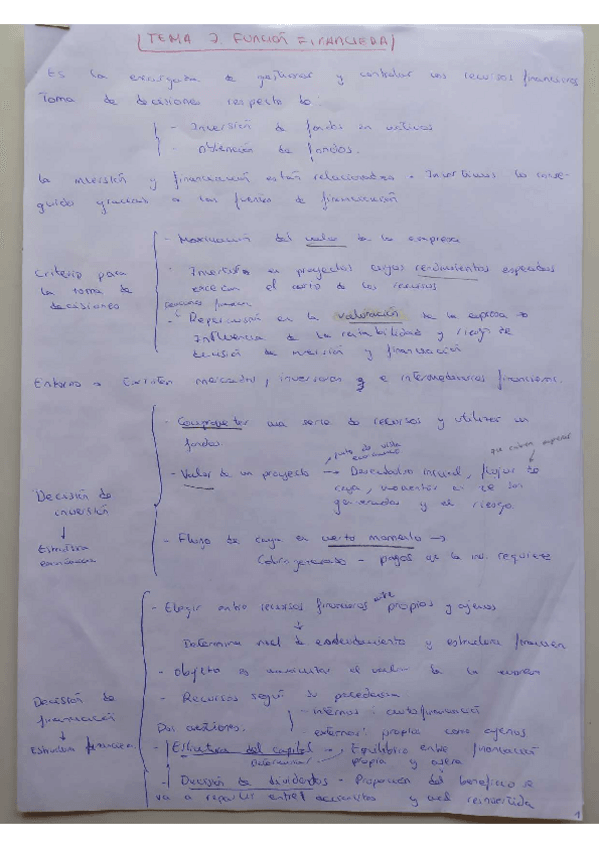 TEMA 7 FUNCIÓN FINANCIERA
Es la encargada de gestionar y controlar los recursos financieros
Toma de decisiones respecto a:
- Inversión de fondos en activos
- Obtención de fondos.
La inversión y financiación están relacionadas → Invertimos lo conse-
guido gracias a las fuentes de financiación
Criterio para
la toma de
decisiones
- Maximización del valor de la empresa
- Invertir en proyectos cuyos rendimientos esperados
excedan el costo de los recursos
- Repercusión en la valoración de la empresa →
Influencia de la rentabilidad y riesgo de
decisión de inversión y financiación
Entorno → Existen mercados, inversores e intermediarios financieros.
Decisión de
inversión
↓
Estructura
económica
- Comprometer una serie de recursos y utilizar
fondos.
- Valor de un proyecto → Desembolso inicial, flujos de
caja, momentos en que son
generados y el riesgo.
- Flujo de caja en cierto momento →
Cobros generados - pagos que la inv. requiere
Decisión de
financiación
↓
Estructura financiera
- Elegir entre recursos financieros propios y ajenos
↓
Determina nivel de endeudamiento y estructura financiera
- Objetivo es maximizar el valor de la
- Recursos según su procedencia
- internos - autofinanciación
externos: propios como ajenos
Dos decisiones:
- Estructura del capital → Equilibrio entre financiación
Determinar propia y ajena
- Decisión de dividendos - Proporción del beneficio se
va a repartir entre accionistas y reinvertida
1